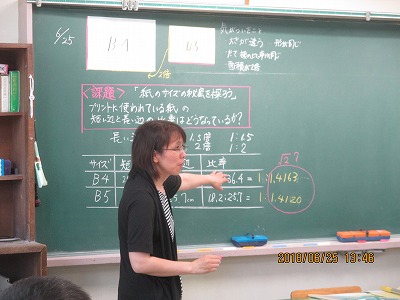 6/25
B4
B5
2倍
気がついたこと
大きさが違う 形は同じ
たて横の比率は同じ
面積が2倍
<課題>「紙のサイズの秘密を探ろう」
プリントに使われている紙の
短い辺と長い辺の比率はどうなっているか?
長い
1.5倍 1:1.5
2倍 1:2
√2?
サイズ 短 辺 比率
B4 36.4 = 1:1.4163
B5 5.7cm 18.2:25.7 = 1:1.4120
2018/06/25 13:46